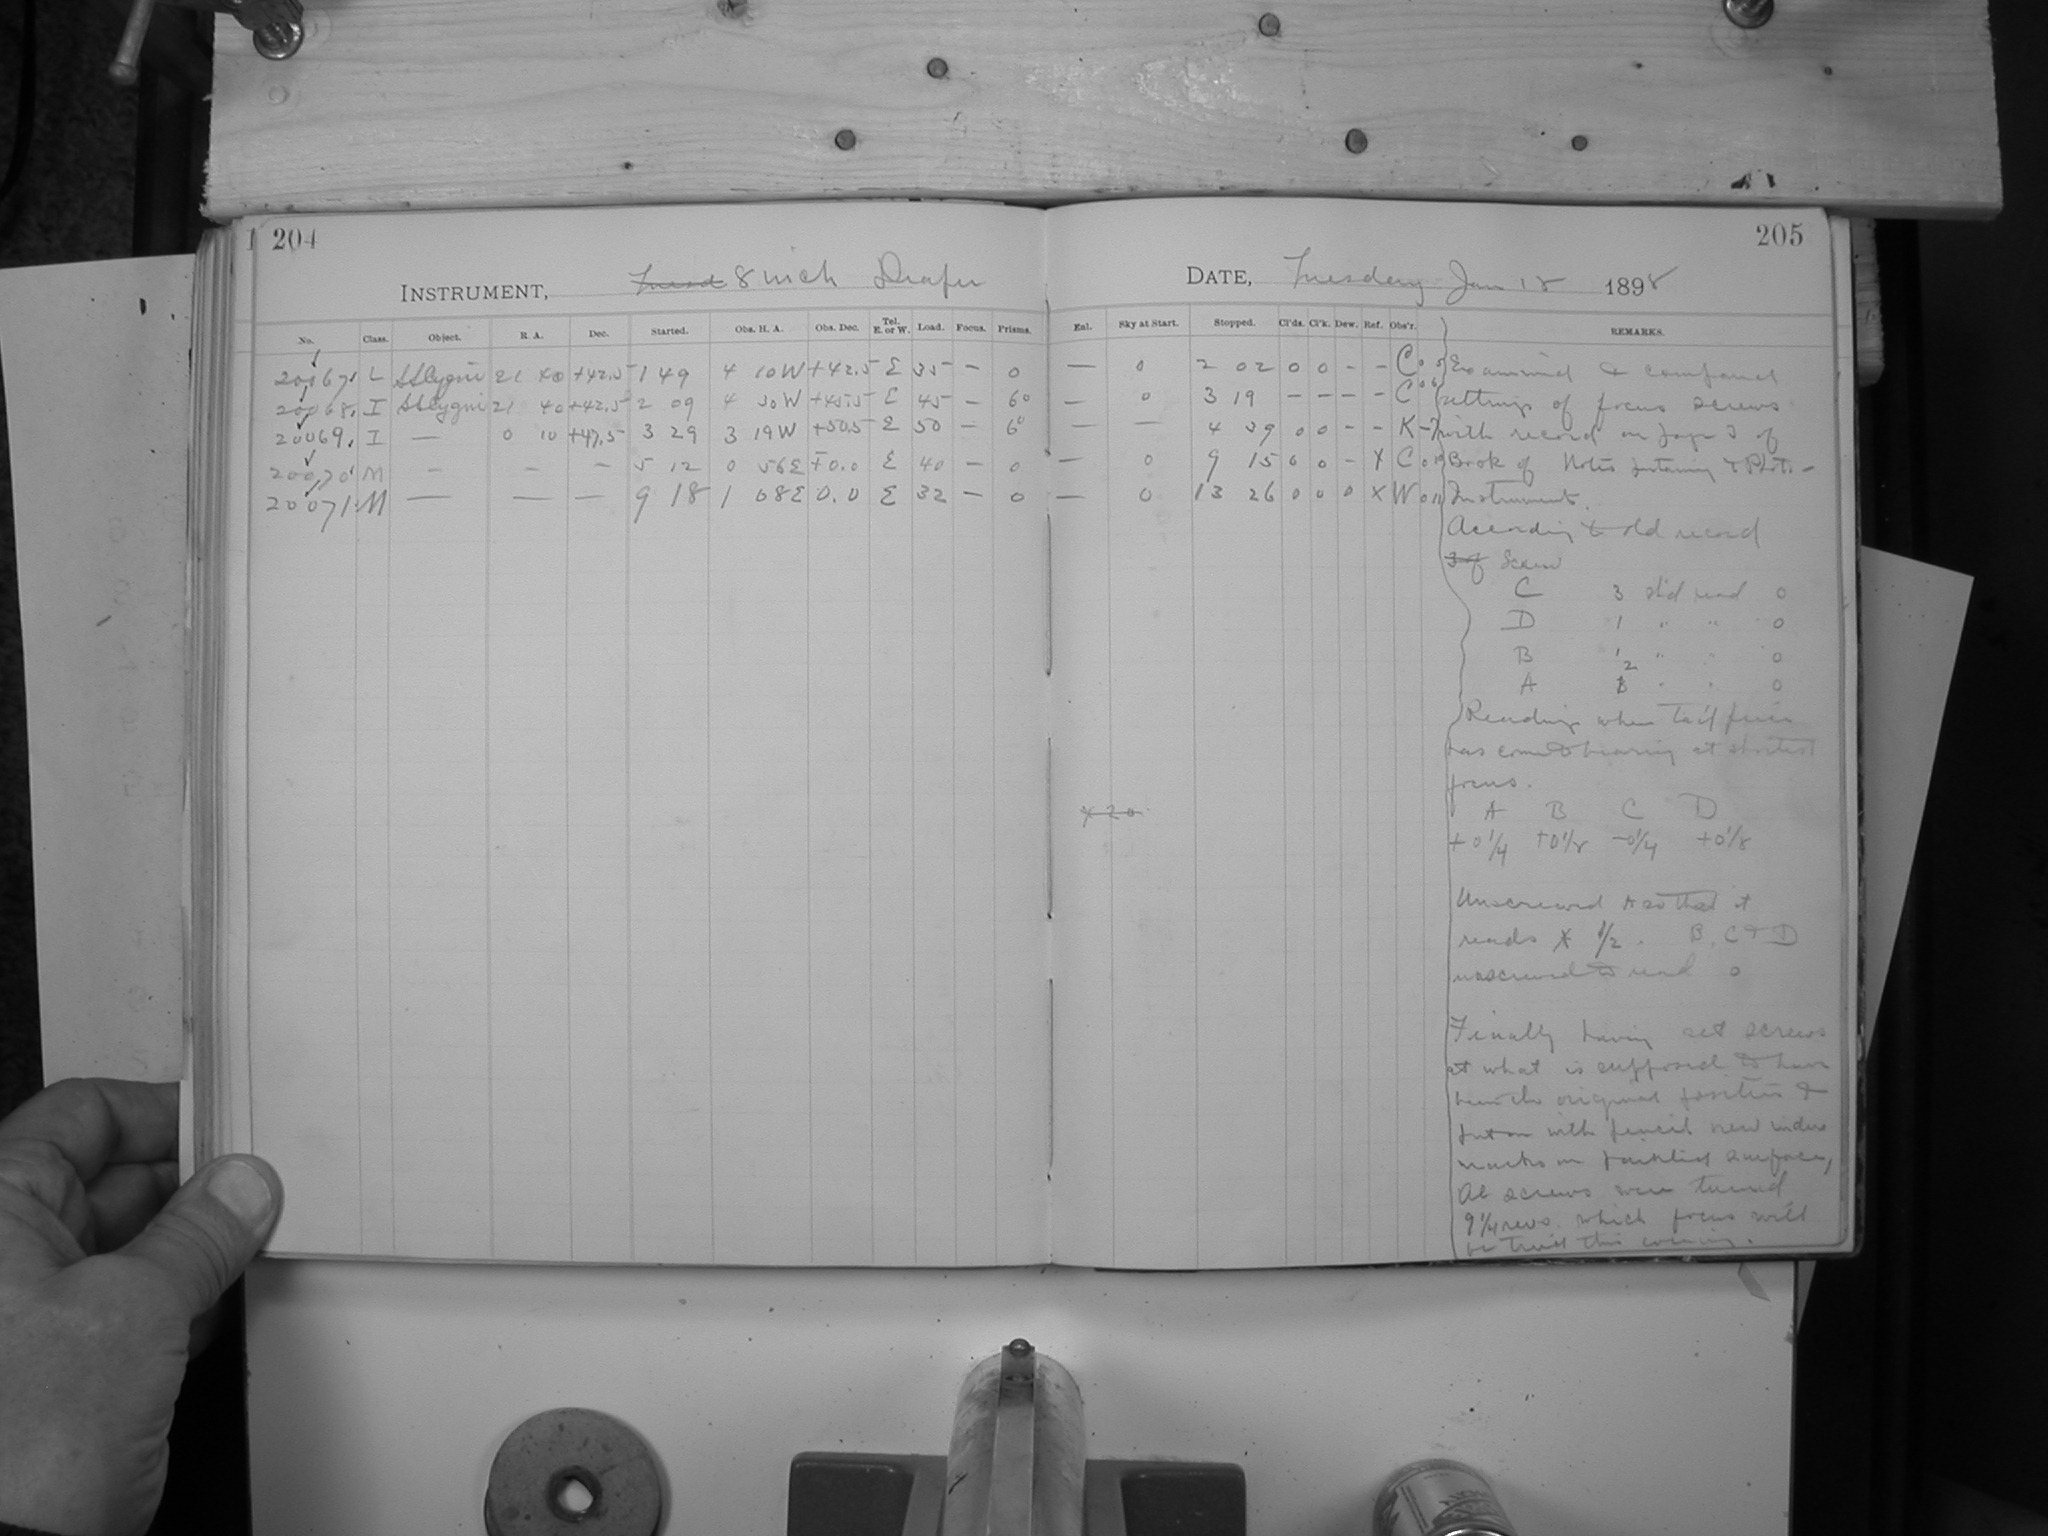 204
INSTRUMENT, 8 inch Draper
No. Class. Object. R. A. Dec. Started. Obs. H. A. Obs. Dec. Tel. E. or W. Load. Focus. Prisms.
20067. L SSCygni 21 40 +42.5 1 49 4 10W +42.5 E 35 – 0
20068. I SSCygni 21 40 +42.5 2 09 4 30W +45.5 E 45 – 6°
20069. I — 0 10 +47.5 3 29 3 19W +50.5 E 50 – 6°
20070 M – – – 5 12 0 56E +0.0 E 40 – 0
20071. M — — — 9 18 1 08E 0.0 E 32 – 0
205
DATE, Tuesday Jan 18 1898
Enl. Sky at Start. Stopped. Cl'ds. Cl'k. Dew. Ref. Obs'r. REMARKS.
— 0 2 02 0 0 - - C Examined & compared
— 0 3 19 - - - - C settings of focus screws
— — 4 39 0 0 - - K with record on page 3 of
— 0 9 15 0 0 - X C Book of Notes pertaining to Photo-
— 0 13 26 0 0 0 X W Instrument.
According to old record
3 of Screw
C 3 sh'd read 0
D 1 " " 0
B 2 " " 0
A " " 0
Reading when tail piece
has come to bearing at shortest
focus.
X 20
A B C D
+0 1/4 +0 1/8 -0 1/4 +0 1/8
Unscrewed A so that it
reads 1/2. B, C & D
unscrewed to read 0
Finally having set screws
at what is supposed to have
been the original position &
put on with pencil new index
marks on surface,
All screws were turned
9 1/4 revs. which focus will
be tried this evening.